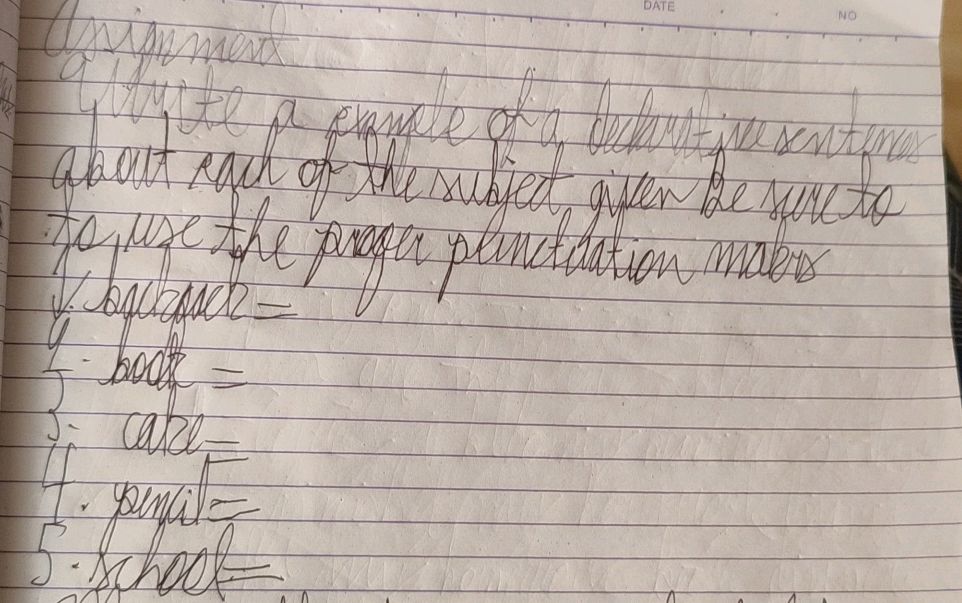 DATE
NO
Assignment
Write a example of a declarative sentences
about each of the subject given Be sure to
to use the proper punctuation makers
1. backpack =
2. book =
3. cake =
4. pencil =
5. school =